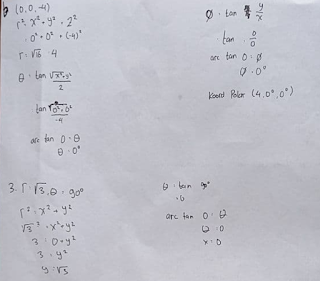 b (0, 0, -4)
r² = x² + y² = z²
= 0² + 0² + (-4)²
r = √16 = 4
θ = tan √x²+y² / z
tan √0²+0² / -4
arc tan 0 = θ
θ = 0°
φ = tan y/x
tan 0/0
arc tan 0 = φ
φ = 0°
Koord Polar (4, 0°, 0°)
3. r = √3, θ = 90°
r² = x² + y²
√3² = x² + y²
3 = 0 + y²
3 = y²
y = √3
θ = tan 90°
= 0
arc tan 0 = θ
θ = 0
x = 0